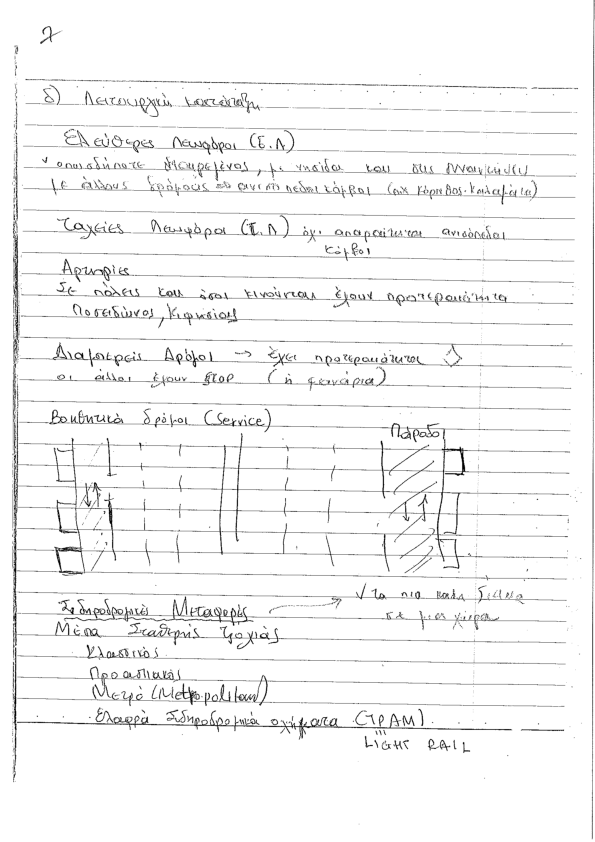 7
δ) Λειτουργική κατάταξη
Ελεύθερες Λεωφόροι (Ε.Λ)
οπωσδήποτε διαιρεμένος, με νησίδα και στις συναντήσεις
με άλλους δρόμους ανισόπεδοι κόμβοι (πχ Κόρινθος-Καλαμάτα)
Ταχείες Λεωφόροι (Τ.Λ) όχι απαραίτητα ανισόπεδοι
κόμβοι
Αρτηρίες
Σε πόλεις και όσοι κινούνται έχουν προτεραιότητα
Ποσειδώνος, Κηφισίας
Διαμπερείς Δρόμοι → έχει προτεραιότητα
οι άλλοι έχουν STOP (ή φανάρια)
Βοηθητικοί δρόμοι (Service)
Πάροδοι
Σιδηροδρομικές Μεταφορές
√ τα πιο καλά δίκτυα
σε μια χώρα
Μέσα Σταθερής Τροχιάς
Κλασσικός
Προαστιακός
Μετρό (Metropolitan)
Ελαφρά Σιδηροδρομικά οχήματα (ΤΡΑΜ)
LIGHT RAIL